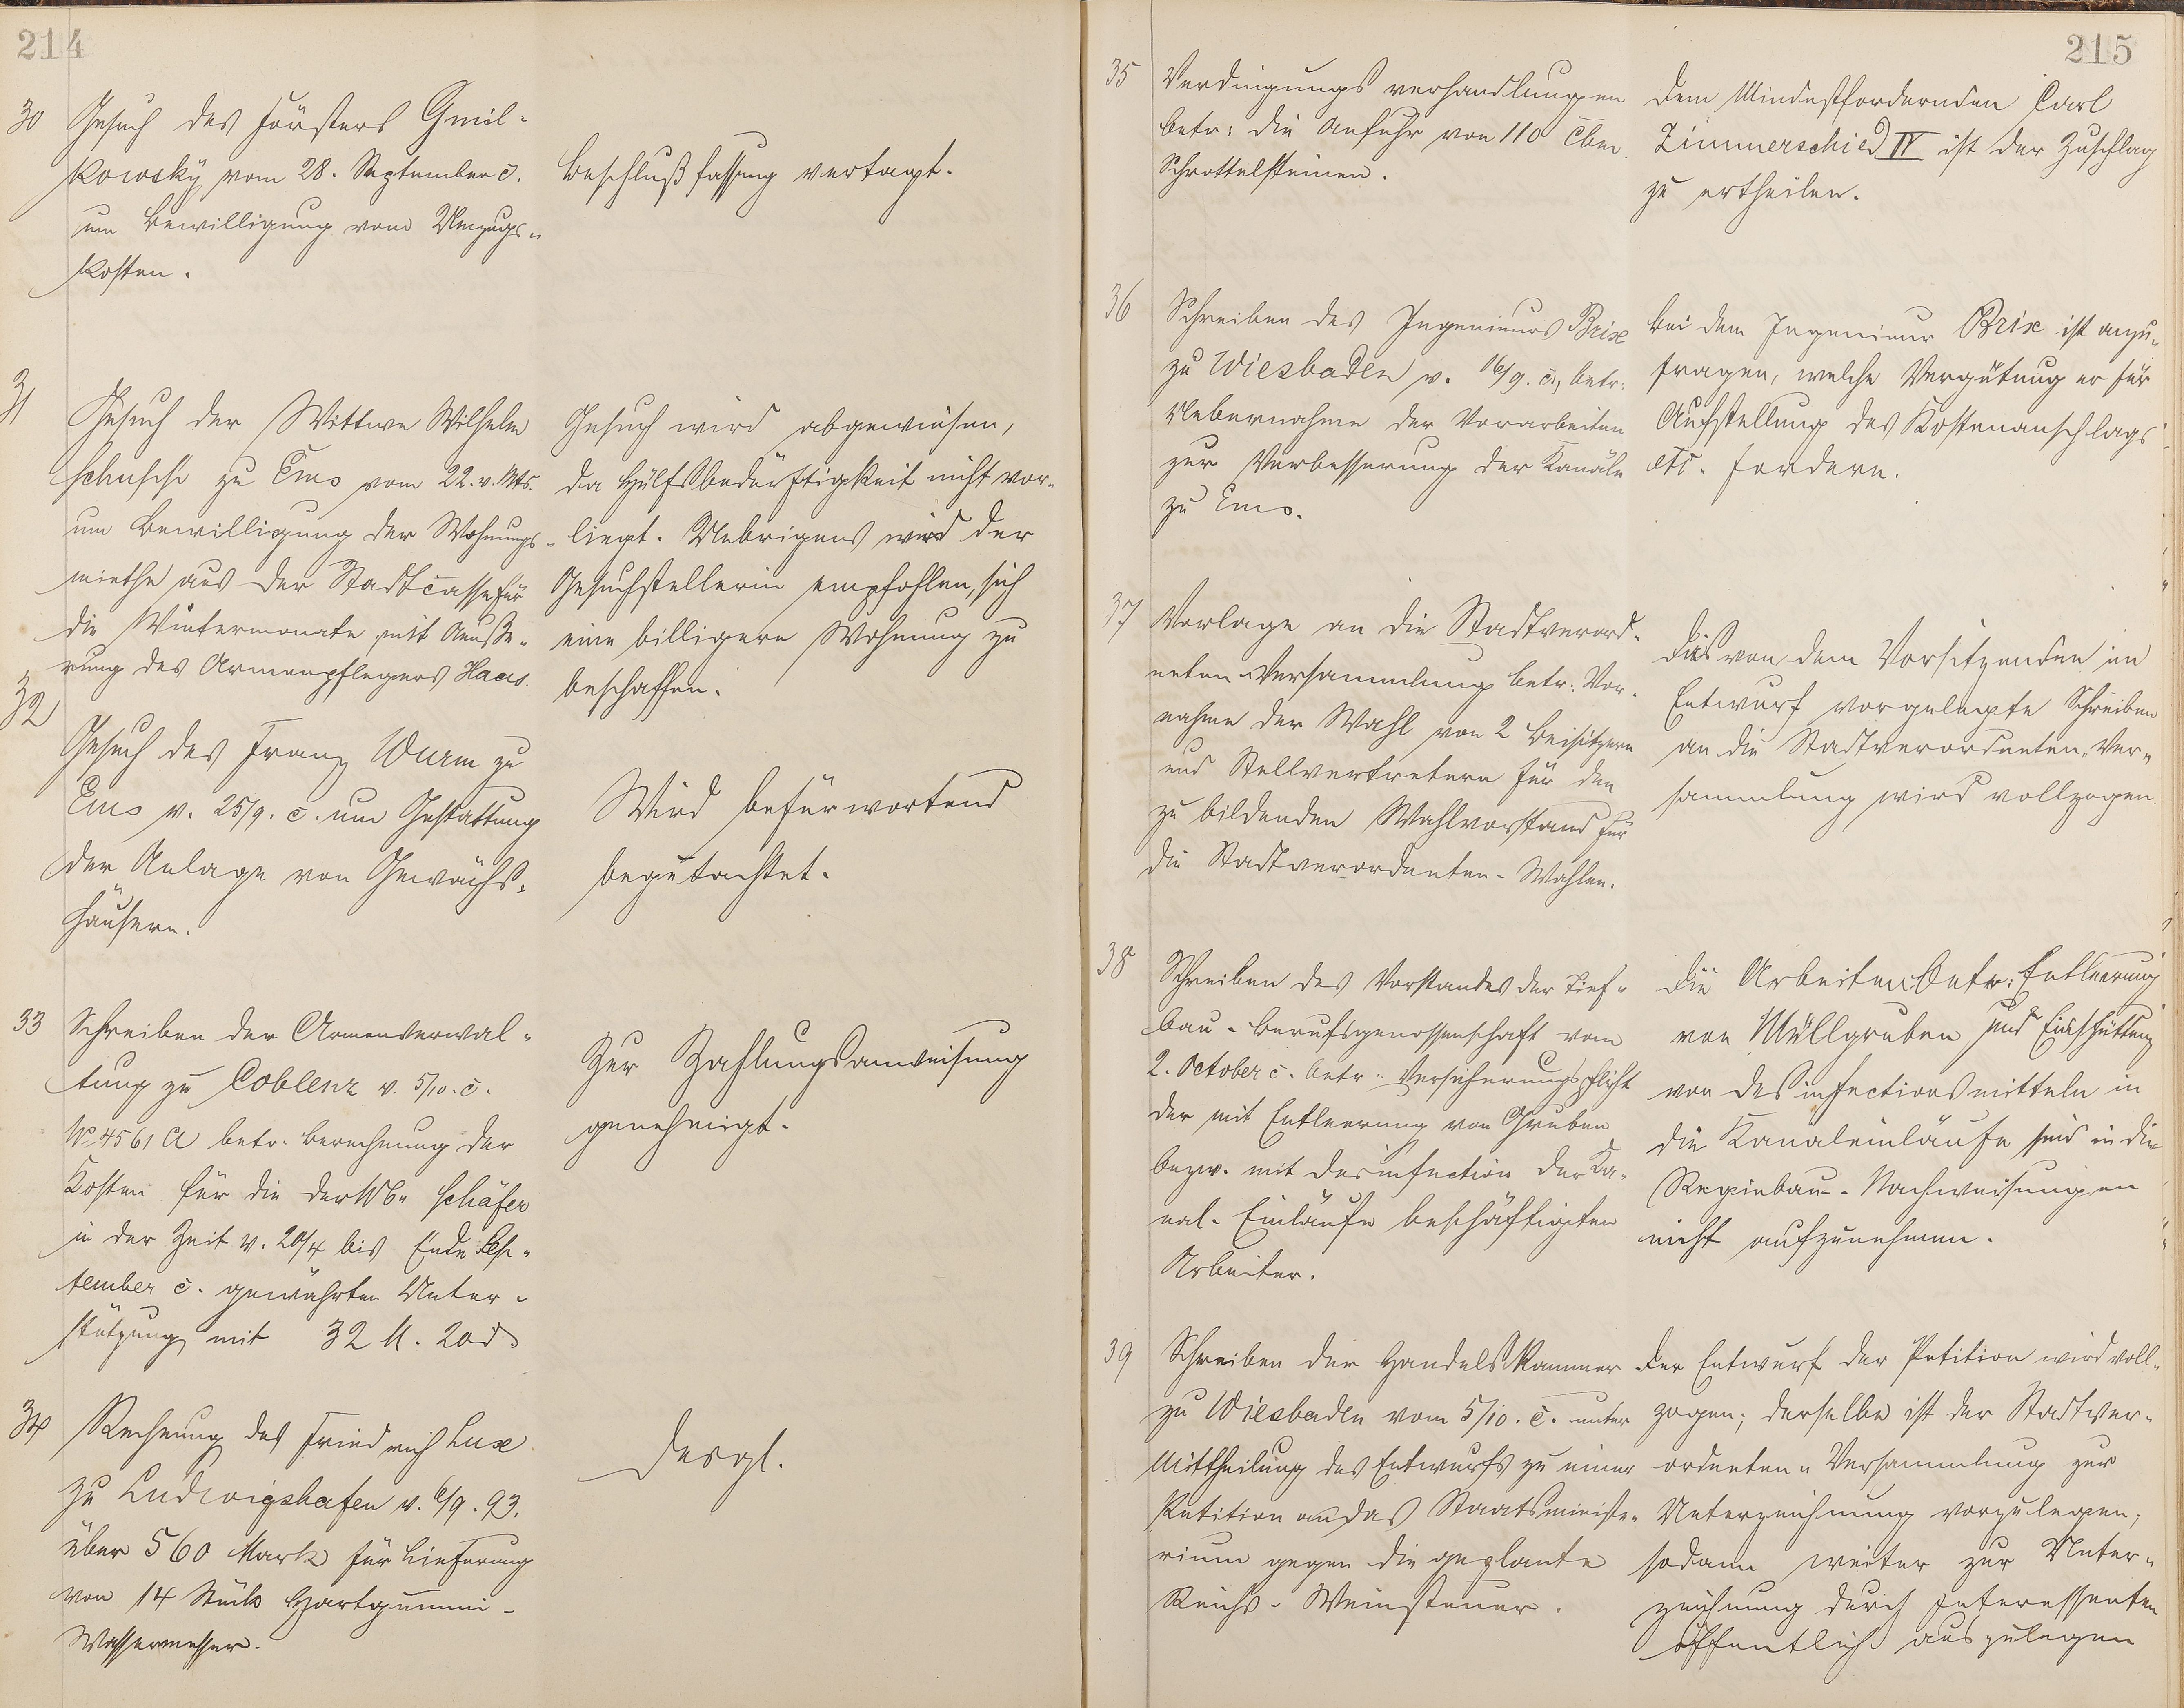 214
30 Gesuch des Försters Gmil-
kowsky vom 28. September c.
um Bewilligung von Umzugs-
kosten.
Beschlußfassung vertagt.
31
Gesuch der Wittwe Wilhelm
Schusch zu Ems vom 22. v. Mts.
um Bewilligung der Wohnungs-
miethe aus der Stadtcasse für
die Wintermonate mit Aeuße-
rung des Armenpflegers Haas.
Gesuch wird abgewiesen,
da Hülfsbedürftigkeit nicht vor-
liegt. Uebrigens wird der
Gesuchstellerin empfohlen, sich
eine billigere Wohnung zu
beschaffen.
32
Gesuch des Franz Wurm zu
Ems v. 25/9. c. um Gestattung
der Anlage von Gewächs-
häusern.
Wird befürwortend
begutachtet.
33 Schreiben der Armenverwal-
tung zu Coblenz v. 5/10. c.
No 4561 A betr. Berechnung der
Kosten für die der Wb. Schäfer
in der Zeit v. 20/4 bis Ende Sep-
tember c. gewährten Unter-
stützung mit 32 M. 20 d
Zur Zahlungsanweisung
genehmigt.
34 Rechnung des Friedrich Lux
zu Ludwigshafen v. 6/9. 93.
über 560 Mark für Lieferung
von 14 Stück Hartgummi-
Wassermesser.
Desgl.
215
35 Verdingungsverhandlungen
betr: die Anfuhr von 110 Cbm.
Schrottelsteinen.
Dem Mindestfordernden Carl
Zimmerschied IV ist der Zuschlag
zu ertheilen.
36 Schreiben des Ingenieurs Brix
zu Wiesbaden v. 16/9. c., betr:
Uebernahme der Vorarbeiten
zur Verbesserung der Kanäle
zu Ems.
Bei dem Ingenieur Brix ist anzu-
fragen, welche Vergütung er für
Aufstellung des Kostenanschlags
etc. fordere.
37 Vorlage an die Stadtverord-
neten-Versammlung betr: Vor-
nahme der Wahl von 2 Beisitzern
und Stellvertretern für den
zu bildenden Wahlvorstand für
die Stadtverordneten-Wahlen.
Das von dem Vorsitzenden im
Entwurf vorgelegte Schreiben
an die Stadtverordneten-Ver-
sammlung wird vollzogen.
38 Schreiben des Vorstandes der Tief-
bau-Berufsgenossenschaft vom
2. October c. betr: Versicherungspflicht
der mit Entleerung von Gruben
bezw. mit Desinfection der Ka-
nal-Einläufe beschäftigten
Arbeiter.
Die Arbeiten betr: Entleerung
von Müllgruben und Einschüttung
von Desinfectionsmitteln in
die Kanaleinläufe sind in die
Regiebau-Nachweisungen
nicht aufzunehmen.
39 Schreiben der Handelskammer
zu Wiesbaden vom 5/10. c. unter
Mittheilung des Entwurfs zu einer
Petition an das Staatsministe-
rium gegen die geplante
Reichs-Weinsteuer.
Der Entwurf der Petition wird voll-
zogen; derselbe ist der Stadtver-
ordneten-Versammlung zur
Unterzeichnung vorzulegen;
sodann weiter zur Unter-
zeichnung durch Interessenten
öffentlich auszulegen